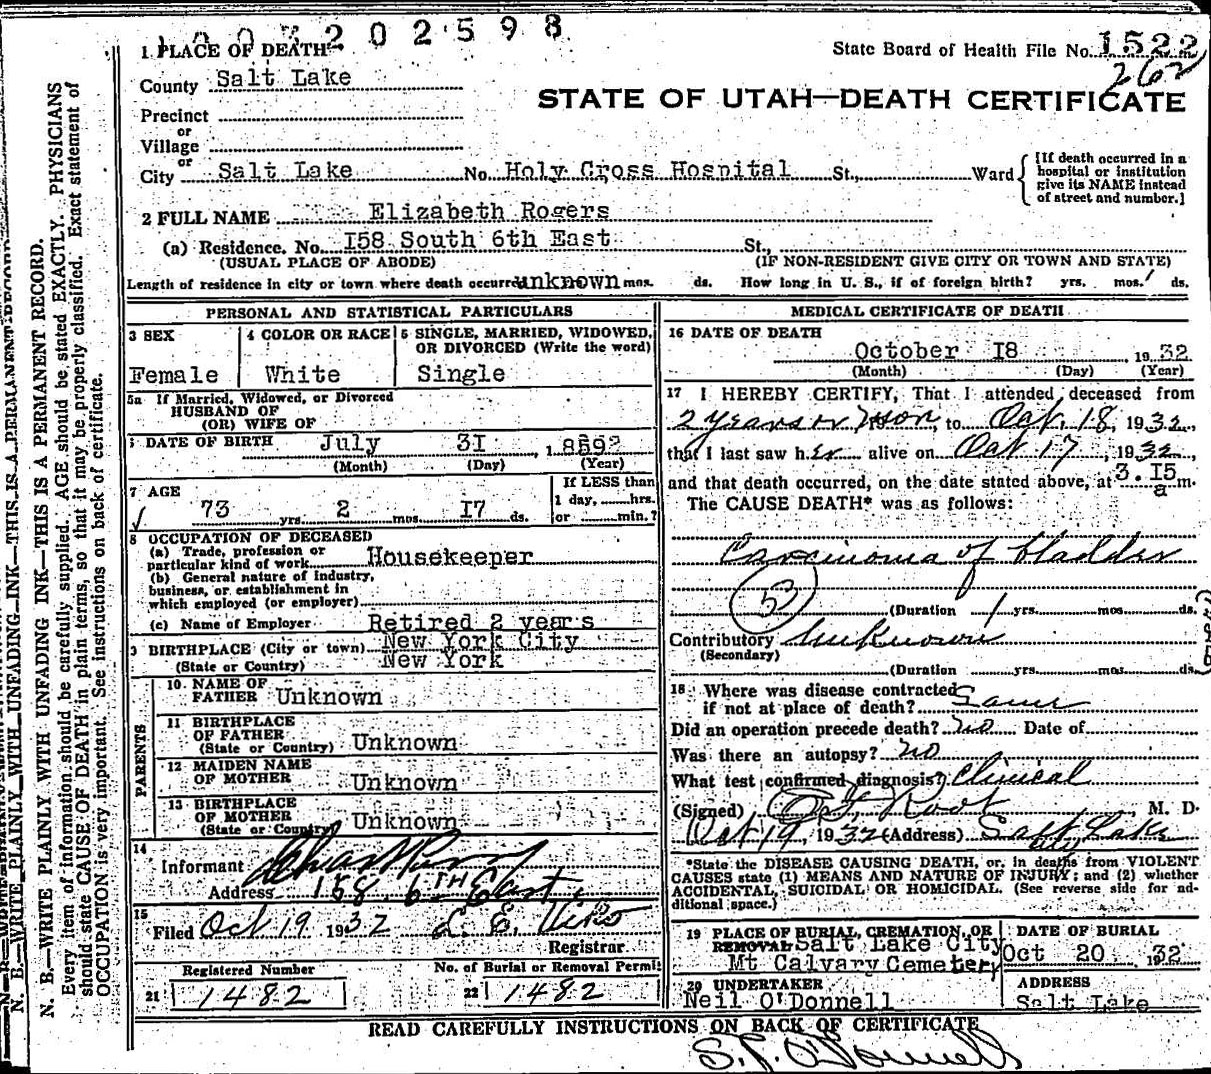 1003202598
1 PLACE OF DEATH
State Board of Health File No. 1522
262
County Salt Lake
STATE OF UTAH—DEATH CERTIFICATE
Precinct
or
Village
or
City Salt Lake No. Holy Cross Hospital St., Ward
[If death occurred in a
hospital or institution
give its NAME instead
of street and number.]
2 FULL NAME Elizabeth Rogers
(a) Residence. No. I58 South 6th East St.,
(USUAL PLACE OF ABODE) (IF NON-RESIDENT GIVE CITY OR TOWN AND STATE)
Length of residence in city or town where death occurred unknown mos. ds. How long in U. S., if of foreign birth? yrs. mos. ds.
PERSONAL AND STATISTICAL PARTICULARS
3 SEX
Female
4 COLOR OR RACE
White
5 SINGLE, MARRIED, WIDOWED,
OR DIVORCED (Write the word)
Single
5a If Married, Widowed, or Divorced
HUSBAND OF
(OR) WIFE OF
DATE OF BIRTH July 3I, 1
(Month) (Day) (Year)
7 AGE
73 yrs. 2 mos. I7 ds.
If LESS than
1 day, hrs.
or min.?
8 OCCUPATION OF DECEASED
(a) Trade, profession or
particular kind of work Housekeeper
(b) General nature of industry,
business, or establishment in
which employed (or employer)
(c) Name of Employer Retired 2 years
9 BIRTHPLACE (City or town) New York City
(State or Country) New York
PARENTS
10 NAME OF
FATHER Unknown
11 BIRTHPLACE
OF FATHER
(State or Country) Unknown
12 MAIDEN NAME
OF MOTHER Unknown
13 BIRTHPLACE
OF MOTHER
(State or Country) Unknown
14
Informant
Address 158 6TH East
15
Filed Oct 19 1932 L. E.
Registrar
Registered Number
21 1482
No. of Burial or Removal Permit
22 1482
MEDICAL CERTIFICATE OF DEATH
16 DATE OF DEATH
October I8 1932
(Month) (Day) (Year)
17 I HEREBY CERTIFY, That I attended deceased from
2 years or more, 19 to Oct. 18, 1932,
that I last saw h er alive on Oct 17, 1932,
and that death occurred, on the date stated above, at 3.I5
a m.
The CAUSE DEATH* was as follows:
Carcinoma of bladder
53
(Duration 1 yrs. mos. ds.
Contributory unknown
(Secondary)
(Duration yrs. mos. ds.
18 Where was disease contracted
if not at place of death? Same
Did an operation precede death? no Date of
Was there an autopsy? no
What test confirmed diagnosis? Clinical
(Signed) Root, M. D.
Oct 19 1932 (Address) Salt Lake
City
*State the DISEASE CAUSING DEATH, or, in deaths from VIOLENT
CAUSES state (1) MEANS AND NATURE OF INJURY; and (2) whether
ACCIDENTAL, SUICIDAL OR HOMICIDAL. (See reverse side for ad-
ditional space.)
19 PLACE OF BURIAL, CREMATION, OR
REMOVAL Salt Lake City
Mt Calvary Cemetery
DATE OF BURIAL
Oct 20 1932
20 UNDERTAKER
Neil O'Donnell
ADDRESS
Salt Lake
READ CAREFULLY INSTRUCTIONS ON BACK OF CERTIFICATE
S. J. O'Donnell
N. B.—WRITE PLAINLY WITH UNFADING INK—THIS IS A PERMANENT RECORD
N. B.—WRITE PLAINLY WITH UNFADING INK—THIS IS A PERMANENT RECORD.
Every item of information should be carefully supplied. AGE should be stated EXACTLY. PHYSICIANS
should state CAUSE OF DEATH in plain terms, so that it may be properly classified. Exact statement of
OCCUPATION is very important. See instructions on back of certificate.